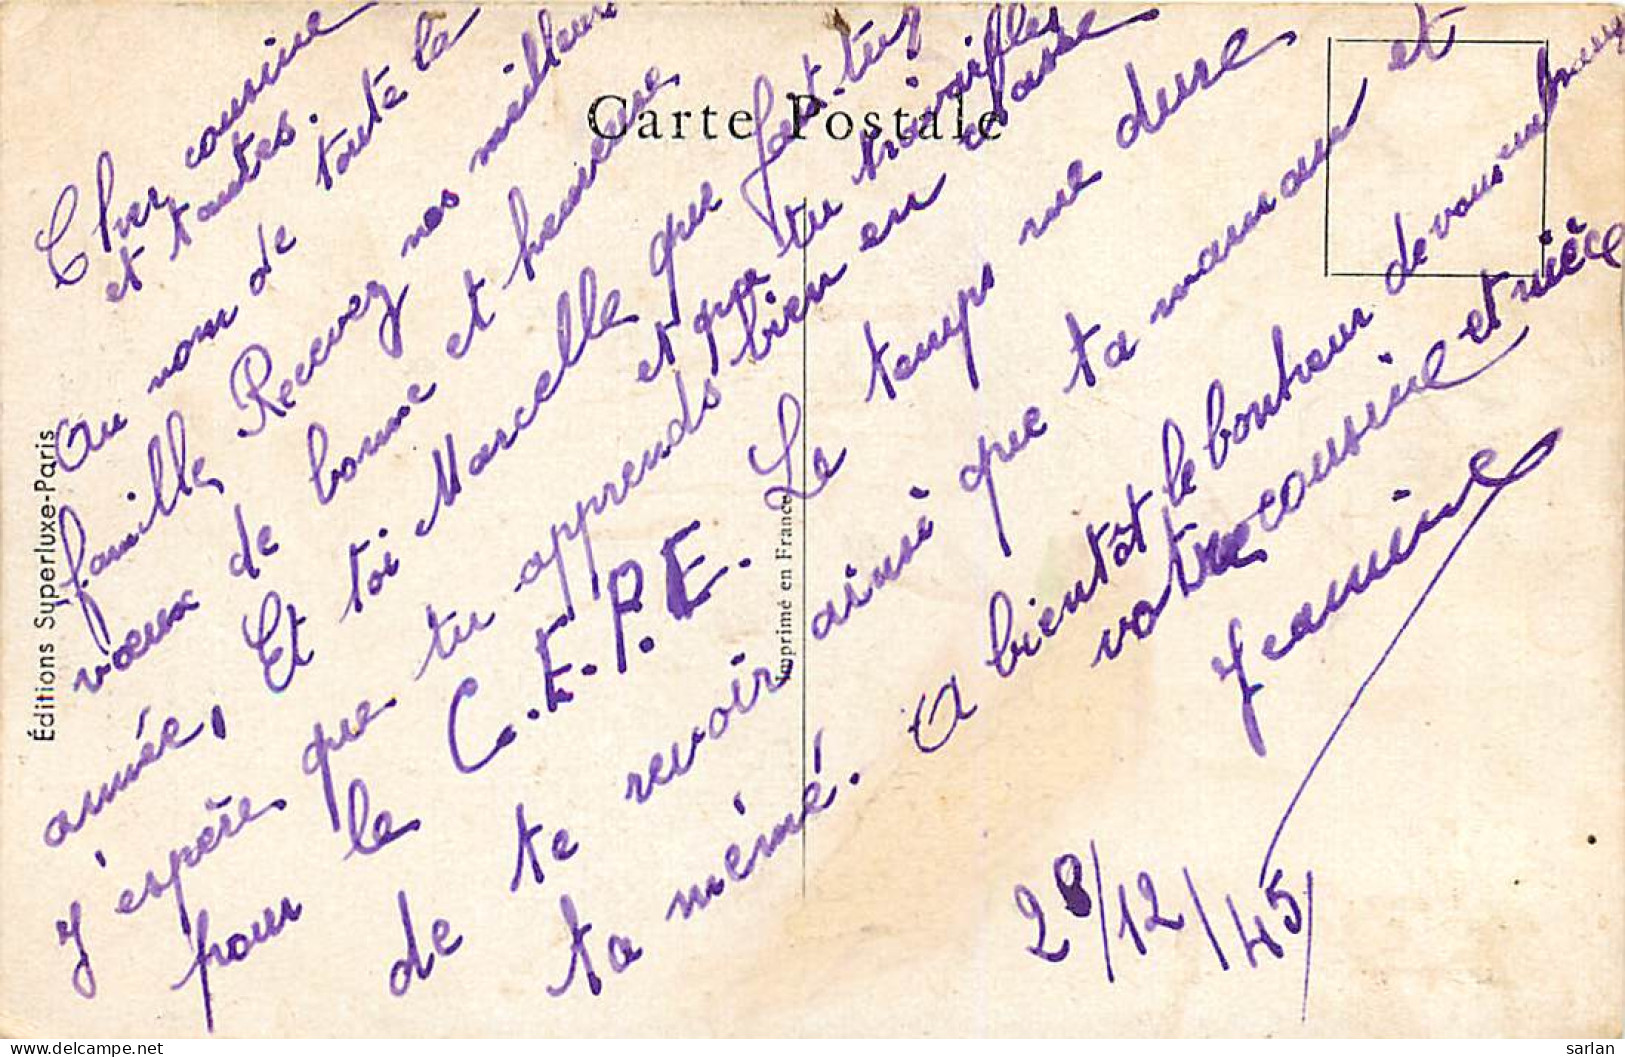 Carte Postale
Éditions Superluxe-Paris
Imprimé en France
Cher cousine
et tantes.
Au nom de toute la
famille Recevez nos meilleurs
vœux de bonne et heureuse
année, Et toi Marcelle que fait-tu?
j'espère que tu apprends et que tu travailles
bien en classe
pour le C.E.P.E. Le temps me dure
de te revoir ainsi que ta maman et
ta mémé. A bientôt le bonheur de vous embrassez
votre cousine et nièce
Jeannine
28/12/45
sarlan